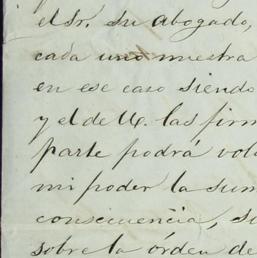 el Sr. su abogado,
cada uno muestra
en ese caso siendo
y el de U. las firm
parte podrá vol
mi poder la sum
consecuencia, su
sobre la órden de